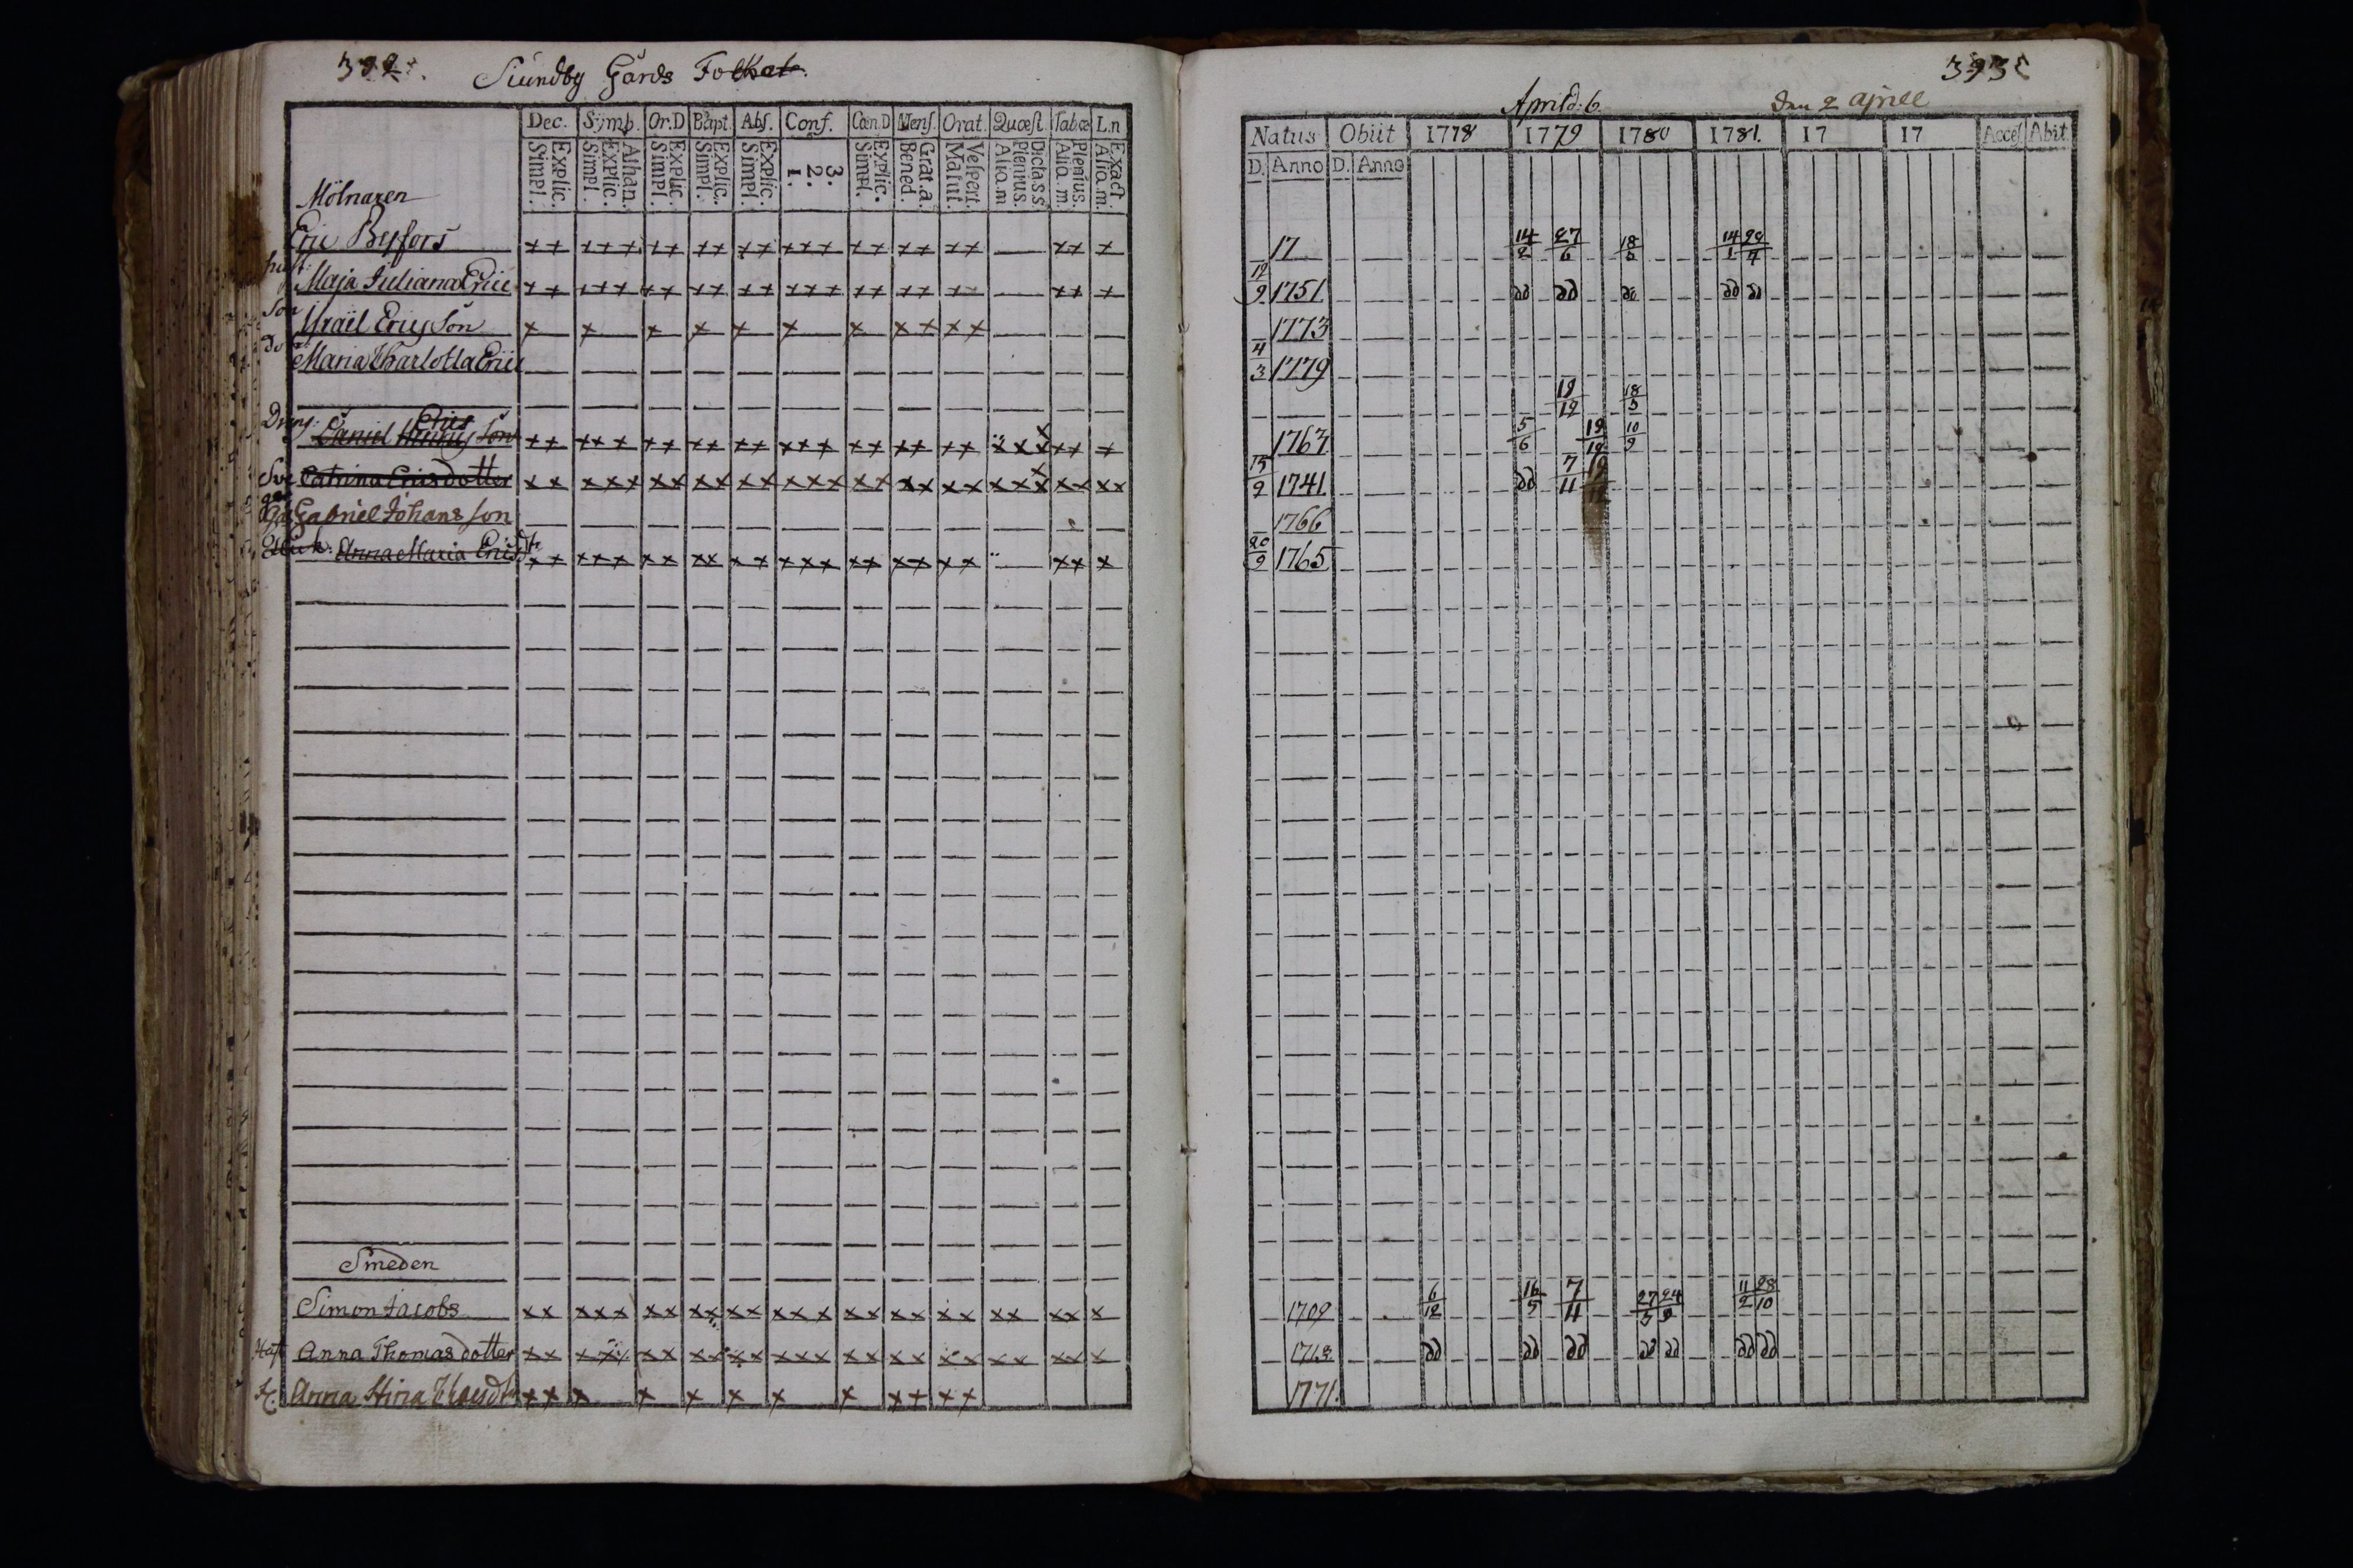 392.
Siundby Gårds Folket.
Dec. Symb. Or.D Bapt. Abs. Conf. Cœn.D Mens. Orat. Quæst. Tab.œ L.n
Explic. Simpl. Athan. Explic. Simpl. Explic. Simpl. Explic. Simpl. Explic. Simpl. 3. 2. 1. Explic. Simpl. Grat.a. Bened. Vespert. Matut. Dicta s.s. Plenius. Aliq.m Plenius. Aliq.m Exact. Aliq.m
Mölnaren
Eric Byfors ++ +++ ++ ++ ++ +++ ++ ++ ++ ++ +
hust: Maja Juliana Eric ++ +++ ++ ++ ++ +++ ++ ++ ++ ++ +
Son Israel Erics Son + + + + + + + ++ ++
dott Maria Charlotta Eric
Dräng: Daniel Erics Son ++ +++ ++ ++ ++ +++ ++ ++ ++ xxx ++ +
Catrina Ericsdotter xx xxx xx xx xx xxx xx xx xx xxx xx xx
Gabriel Johans son
Anna Maria Ericsdr ++ +++ xx xx ++ +++ ++ ++ ++ ++ x
Smeden
Simon Jacobs xx xxx xx xx xx xxx xx xx xx xx xx x
Hust Anna Thomasdotter xx xxx xx xx xx xxx xx xx xx xx xx x
Anna Stina ++ + + + + + + ++ ++
393
April d: 6. den 2 aprill
Natus Obiit 1778 1779 1780 1781. 17 17 Acces Abit
D. Anno D. Anno
17 14/2 27/6 18/5 14/1 29/4
12/9 1751 dd dd do dd dd
1773
4/3 1779
19/12 18/5
1763 5/6 19/12 10/9
15/9 1741 dd 7/11
1766
20/9 1765
1709 6/12 16/5 7/11 27/5 24/9 11/2 28/10
1718 dd dd dd dd dd dd dd
1771.